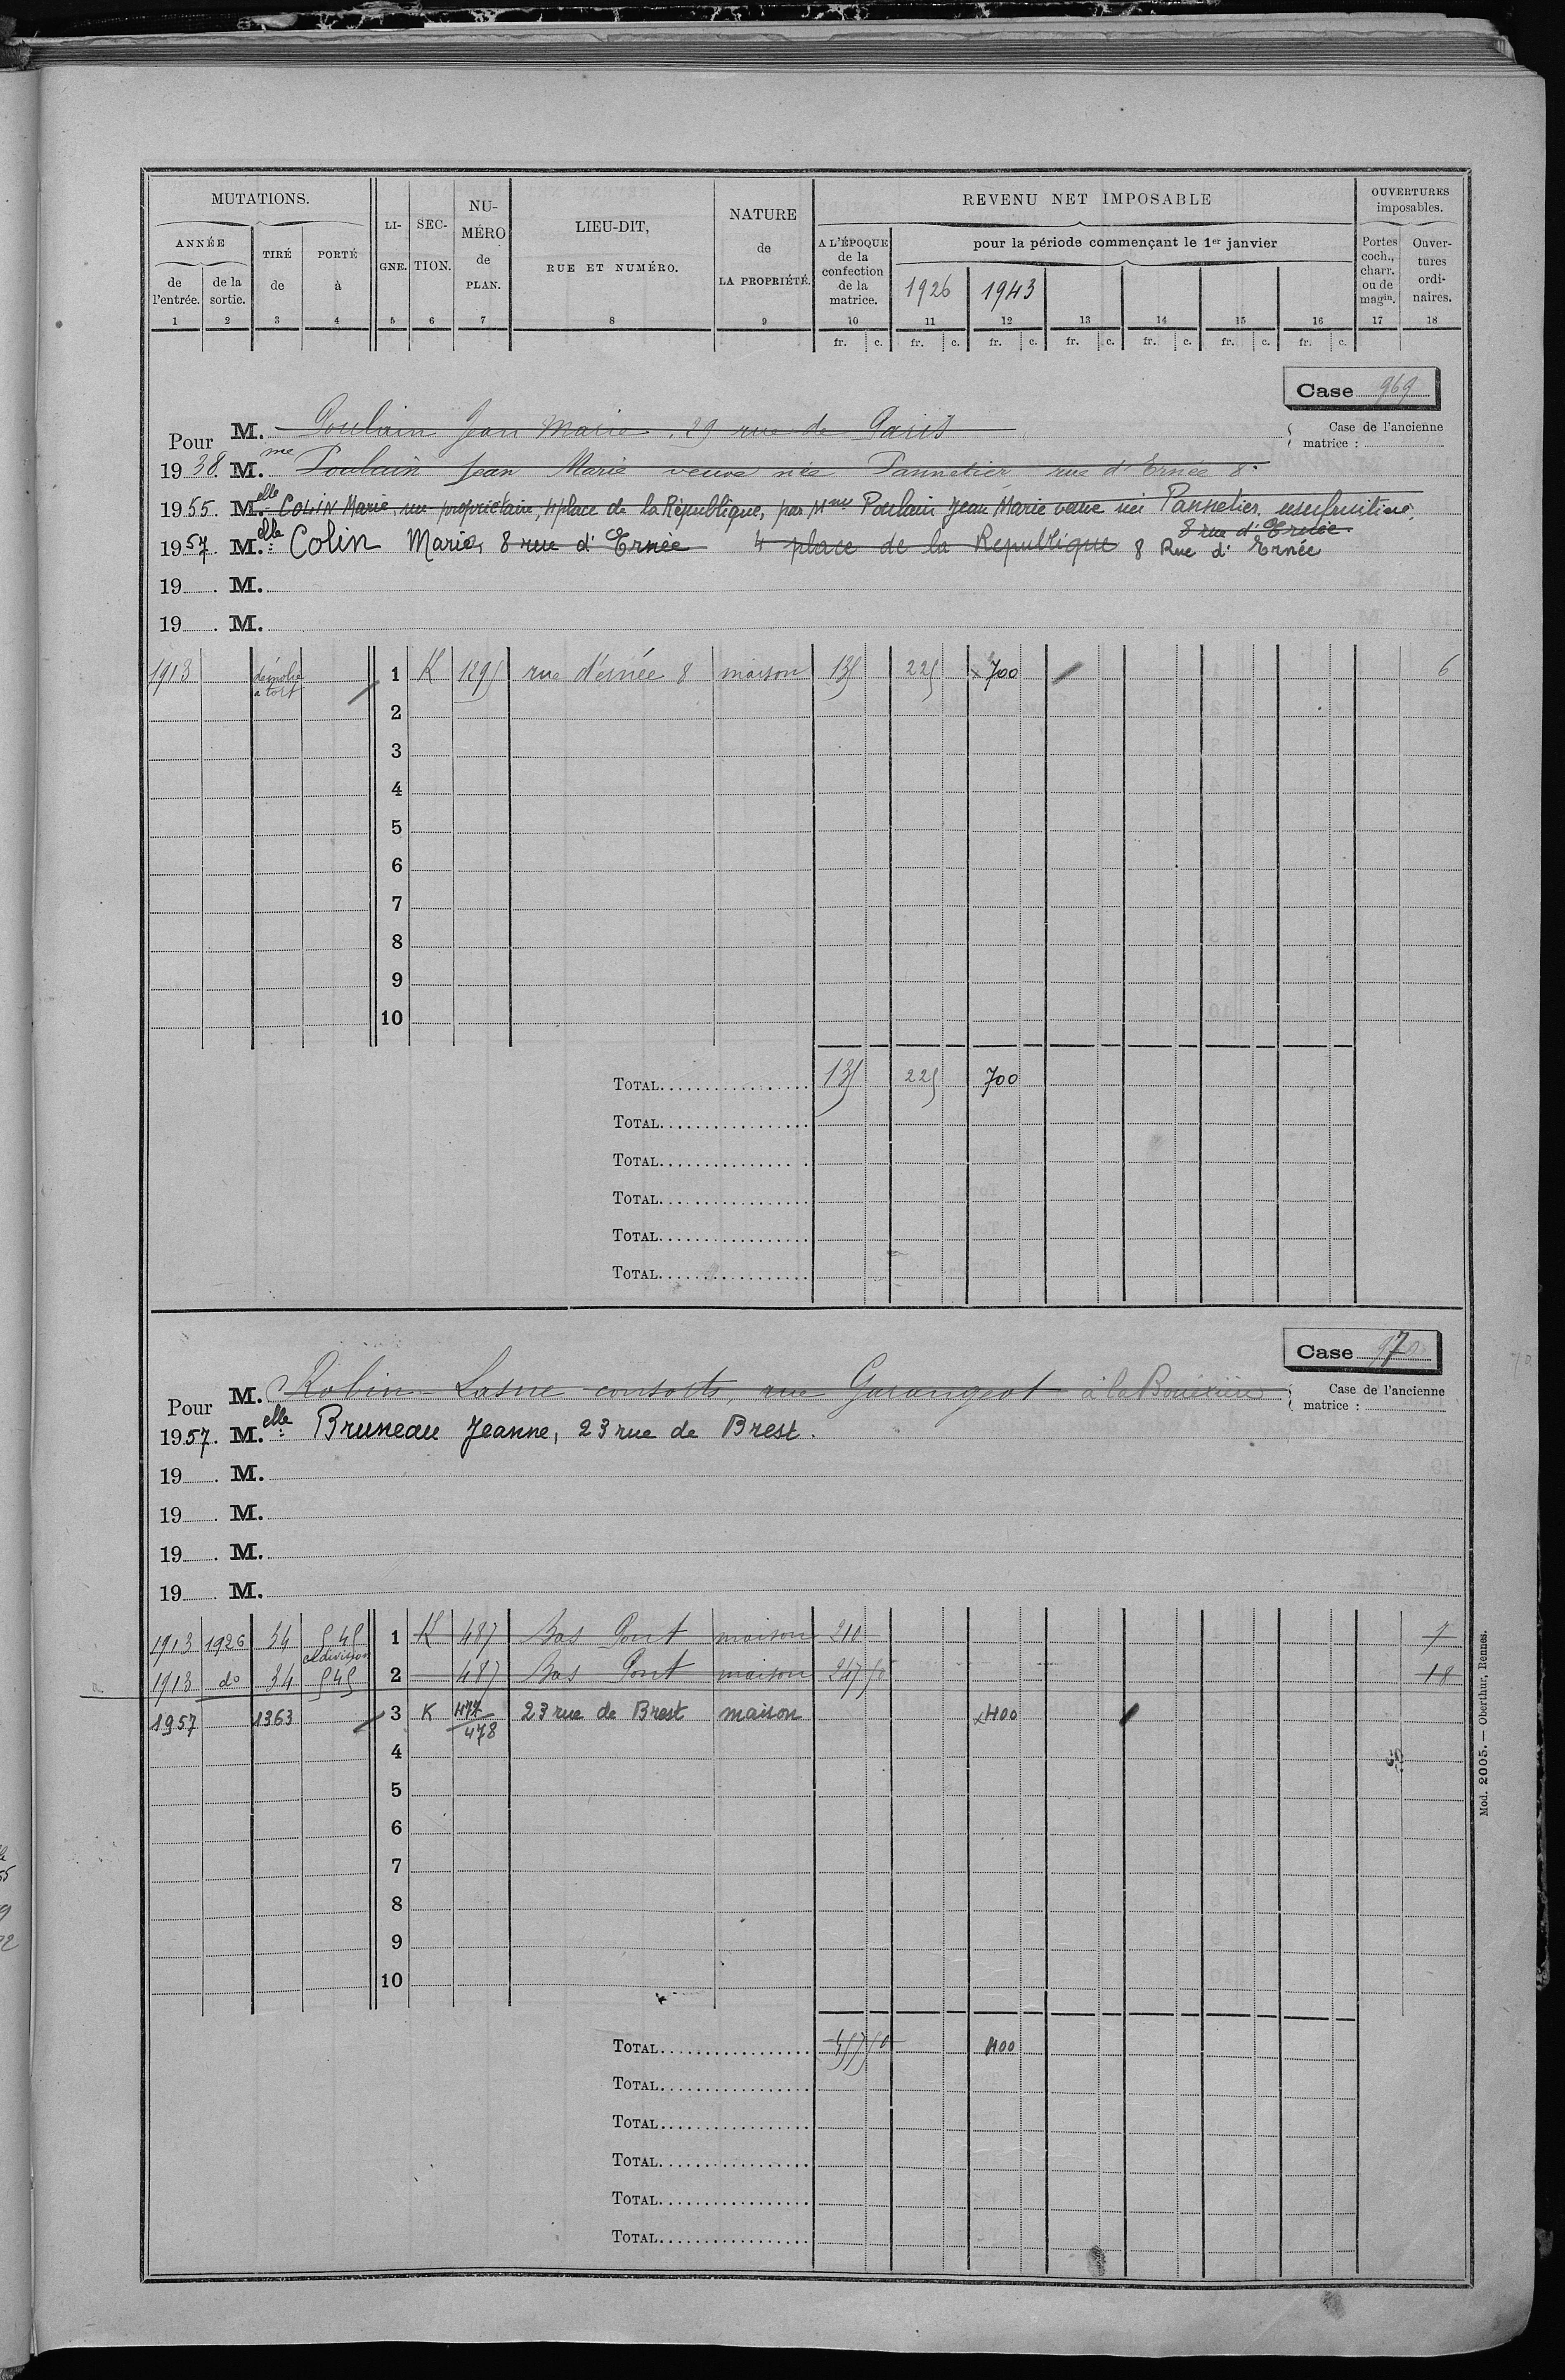 MUTATIONS.
ANNÉE
de l'entrée.
de la sortie.
TIRÉ de
PORTÉ à
LI-GNE.
SEC-TION.
NU-MÉRO de PLAN.
LIEU-DIT, RUE ET NUMÉRO.
NATURE de LA PROPRIÉTÉ.
REVENU NET IMPOSABLE
A L'ÉPOQUE de la confection de la matrice.
pour la période commençant le 1er janvier
1926 1943
OUVERTURES imposables.
Portes coch., charr. ou de magin.
Ouver-tures ordi-naires.
1 2 3 4 5 6 7 8 9 10 11 12 13 14 15 16 17 18
fr. c. fr. c. fr. c. fr. c. fr. c. fr. c. fr. c.
Case 969
Pour M. Poulain Jean Marie. 29 rue de Paris
Case de l'ancienne matrice :
1938. Mme Poulain Jean Marie veuve née Pannetier rue d'Ernée 8.
1955. Melle COLIN Marie, nu-propriétaire, 4 place de la République, par Mme Poulain Jean Marie veuve née Pannetier, usufruitière,
8 rue d'Ernée.
1957. Melle Colin Marie, 8 rue d'Ernée 4 place de la République 8 Rue d'Ernée
19 . M.
19 . M.
1913 démolie a tort 1 K 1295 rue d'ernée 8 maison 135 225 x 700 6
2
3
4
5
6
7
8
9
10
TOTAL 135 225 700
TOTAL
TOTAL
TOTAL
TOTAL
TOTAL
Case 970
Pour M. Robin-Lasne consorts, rue Garangeot à la Bouëxière
Case de l'ancienne matrice :
1957. Melle Bruneau Jeanne, 23 rue de Brest.
19 . M.
19 . M.
19 . M.
19 . M.
1913 1926 34 545 1 K 487 Bas Pont maison 210 7
et division
1913 do 34 545 2 487 Bas Pont maison 247 50 18
1957 1363 3 K 477/478 23 rue de Brest maison x400
4
5
6
7
8
9
10
TOTAL 457 50 400
TOTAL
TOTAL
TOTAL
TOTAL
TOTAL
Mod. 2005. — Oberthur, Rennes.